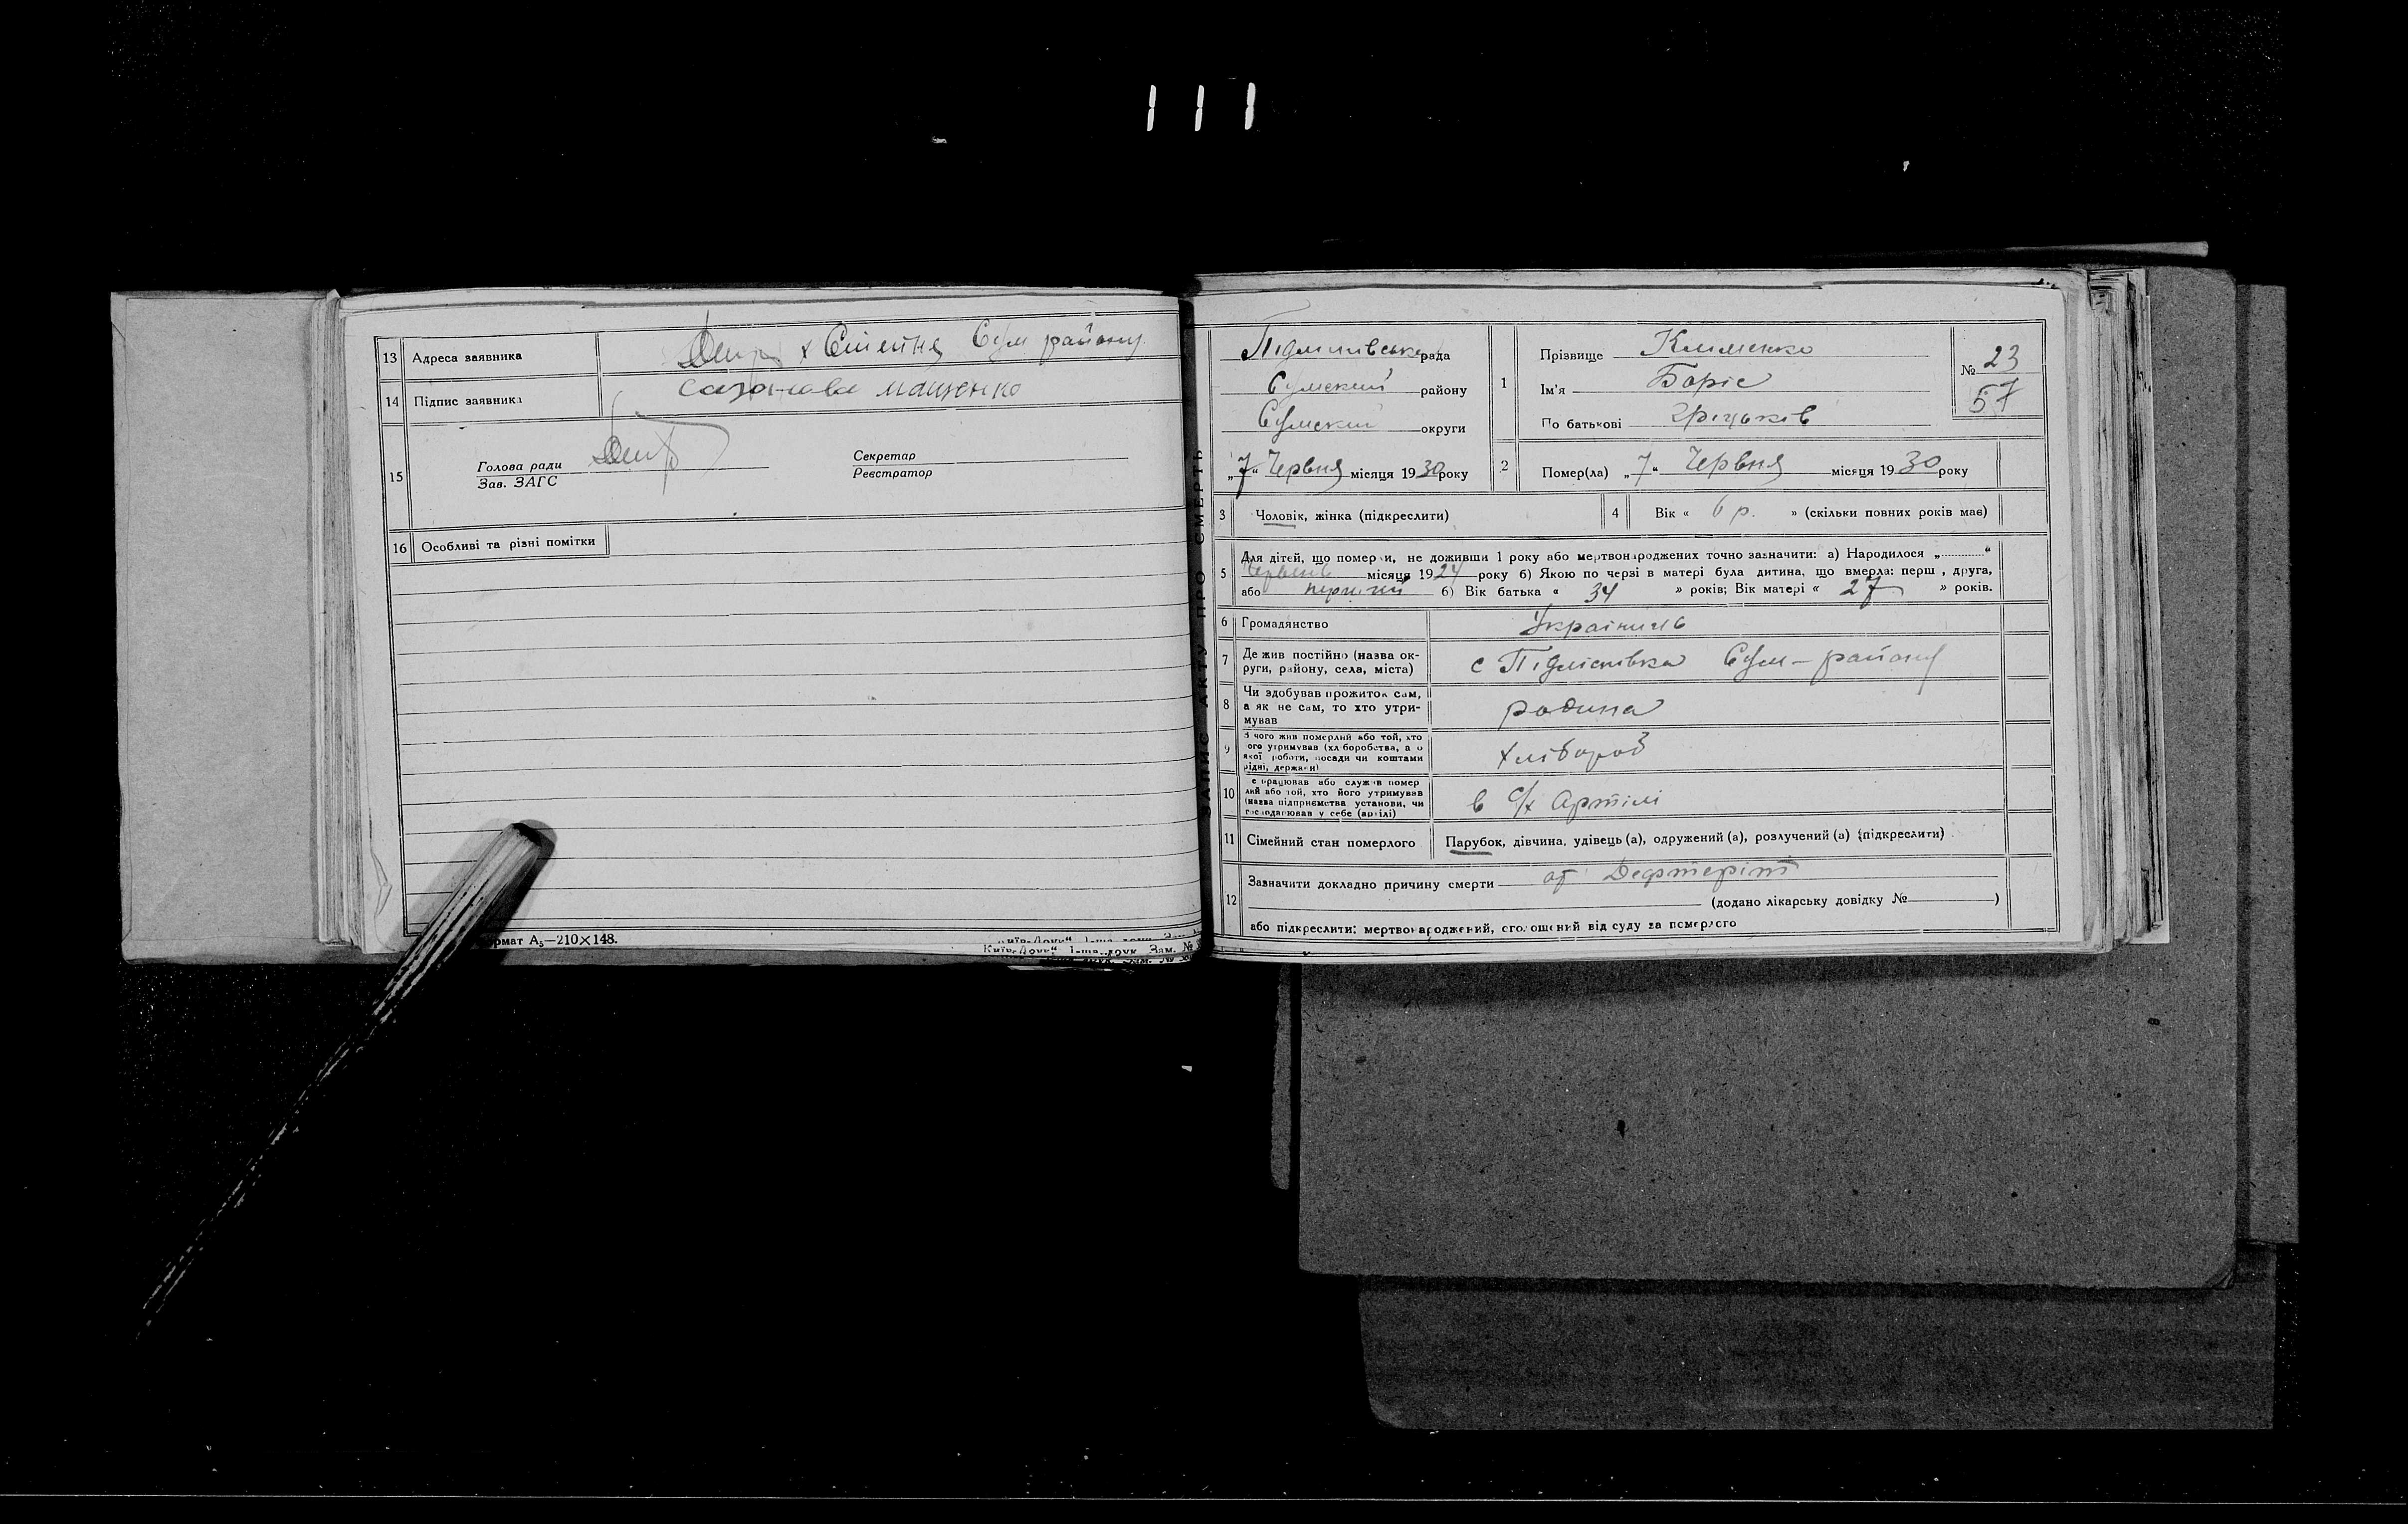 111
13 Адреса заявника х Сум району
14 Підпис заявника Мащенко
15
Голова ради
Зав. ЗАГС
Секретар
Реєстратор
16 Особливі та різні помітки
рмат А₅—210×148.
Київ-Друк" 1-ша друк. Зам. №
ЗАПИС АКТУ ПРО СМЕРТЬ
рада
Сумский району
Сумский округи
„7" Червня місяця 1930 року
1 Прізвище Клименко
Ім'я Боріс
По батькові Грицьків
№ 23
57
2 Помер(ла) „7" Червня місяця 1930 року
3 Чоловік, жінка (підкреслити)
4 Вік « 6 р. » (скільки повних років має)
5 Для дітей, що померли, не доживши 1 року або мертвонароджених точно зазначити: а) Народилося „............"
Червень місяця 1924 року б) Якою по черзі в матері була дитина, що вмерла: перш , друга,
або перший б) Вік батька « 34 » років; Вік матері « 27 » років.
6 Громадянство Українець
7 Де жив постійно (назва ок-
руги, району, села, міста) с Підліснівка Сум — району
8 Чи здобував прожиток сам,
а як не сам, то хто утри-
мував родина
9 З чого жив померлий або той, хто
ого утримував (хліборобства, а о
якої роботи, посади чи коштами
рідні, держави) хлібороб
10 е працював або служив помер
лий або той, хто його утримував
(назва підприємства установи, чи
господарював у себе (артілі) в с/х Артілі
11 Сімейний стан померлого Парубок, дівчина, удівець (а), одружений (а), розлучений (а) (підкреслити)
12 Зазначити докладно причину смерти от Дефтеріт
(додано лікарську довідку № )
або підкреслити: мертвонароджений, оголошений від суду за померлого